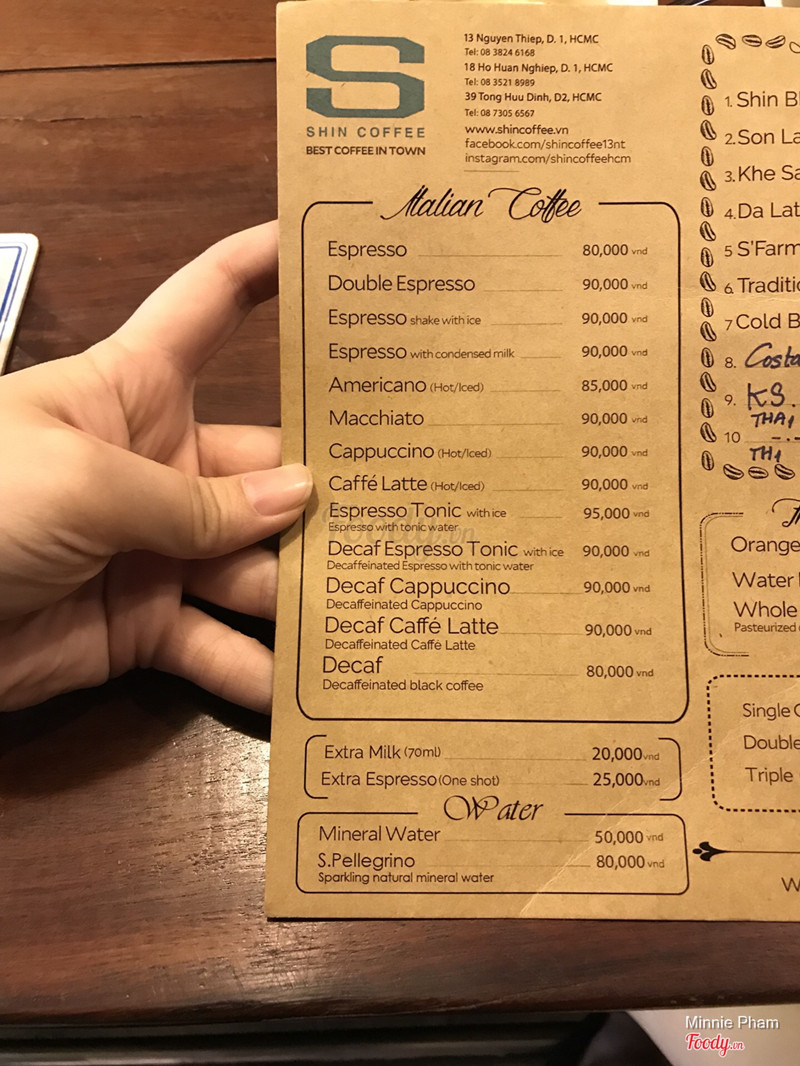 S
SHIN COFFEE
BEST COFFEE IN TOWN
13 Nguyen Thiep, D. 1, HCMC
Tel: 08 3824 6168
18 Ho Huan Nghiep, D. 1, HCMC
Tel: 08 3521 8989
39 Tong Huu Dinh, D2, HCMC
Tel: 08 7305 6567
www.shincoffee.vn
facebook.com/shincoffee13nt
instagram.com/shincoffeehcm
Italian Coffee
Espresso 80,000 vnd
Double Espresso 90,000 vnd
Espresso shake with ice 90,000 vnd
Espresso with condensed milk 90,000 vnd
Americano (Hot/Iced) 85,000 vnd
Macchiato 90,000 vnd
Cappuccino (Hot/Iced) 90,000 vnd
Caffé Latte (Hot/Iced) 90,000 vnd
Espresso Tonic with ice 95,000 vnd
Espresso with tonic water
Decaf Espresso Tonic with ice 90,000 vnd
Decaffeinated Espresso with tonic water
Decaf Cappuccino 90,000 vnd
Decaffeinated Cappuccino
Decaf Caffé Latte 90,000 vnd
Decaffeinated Caffé Latte
Decaf 80,000 vnd
Decaffeinated black coffee
Extra Milk (70ml) 20,000 vnd
Extra Espresso (One shot) 25,000 vnd
Water
Mineral Water 50,000 vnd
S.Pellegrino 80,000 vnd
Sparkling natural mineral water
1. Shin B
2. Son La
3. Khe Sa
4. Da Lat
5 S'Farm
6. Traditio
7 Cold B
8. Costa
9. KS.
THA1
10 -.-
TH1
Orange
Water
Whole
Pasteurized
Single O
Double
Triple
W
Minnie Pham
Foody.vn